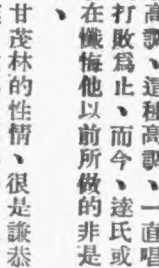 高調、這種高調、一直唱
打敗爲止、而今、達氏或
在懺悔他以前所做的非是
、
甘茂林的性情、很是謙恭